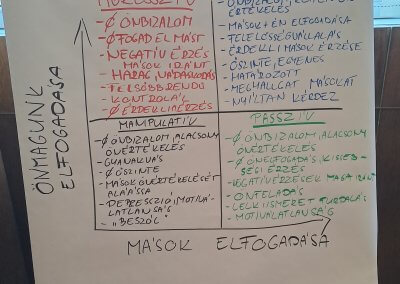 - Ø ÖNBIZALOM
- Ø FOGAD EL MÁST
- NEGATÍV ÉRZÉS
MÁSOK IRÁNT
- HARAG, VÁDASKODÁS
- FELSŐBBRENDŰ
- KONTROLÁL
- Ø ÉRDEKLI ÉRZÉS
ÉRTÉKELÉS
- MÁSOK + ÉN ELFOGADÁSA
- FELELŐSSÉGVÁLLALÁS
- ÉRDEKLI MÁSOK ÉRZÉSE
- ŐSZINTE, EGYENES
- HATÁROZOTT
- MEGHALLGAT MÁSOKAT
- NYÍLTAN KÉRDEZ
MANIPULATÍV
- Ø ÖNBIZALOM, ALACSONY
ÖNÉRTÉKELÉS
- GYANAKVÁS
- Ø ŐSZINTE
- MÁSOK ÖNÉRTÉKELÉSÉT
ALÁÁSSA
- DEPRESSZIÓ, MOTIVÁ-
LATLANSÁG
- "BESZÓL"
PASSZÍV
- Ø ÖNBIZALOM, ALACSONY
ÖNÉRTÉKELÉS
- Ø ÖNELFOGADÁS, KISEBB-
SÉGI ÉRZÉS
- NEGATÍV ÉRZÉSEK MAGA IRÁNT
- ÖNFELADÁS
- LELKIISMERET FURDALÁS
- MOTIVÁLATLANSÁG
ÖNMAGUNK
ELFOGADÁSA
MÁSOK ELFOGADÁSA